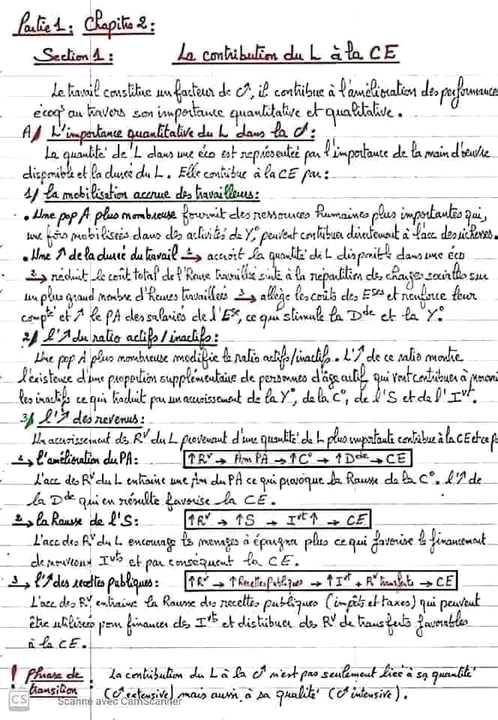 Partie 1 : Chapitre 2 :
Section 1 : La contribution du L à la CE
Le travail constitue un facteur de C↗, il contribue à l'amélioration des performances
écoq^s au travers son importance quantitative et qualitative.
A/ L'importance quantitative du L dans la C↗ :
La quantité de L dans une éco est représentée par l'importance de la main d'œuvre
disponible et la durée du L. Elle contribue à la CE par :
1/ la mobilisation accrue des travailleurs :
• Une pop A plus nombreuse fournit des ressources humaines plus importantes qui,
une fois mobilisées dans des activités de Y°, peuvent contribuer directement à l'acc des richesses.
• Une ↗ de la durée du travail → accroît la quantité de L disponible dans une éco
→ réduit le coût total de l'heure travaillée suite à la répartition des charges sociales sur
un plus grand nombre d'heures travaillées → allège les coûts des E^ses et renforce leur
comp^té et ↗ le PA des salariés de l'E^se, ce qui stimule la D^de et la Y°.
2/ l'↗ du ratio actifs / inactifs :
Une pop A plus nombreuse modifie le ratio actifs/inactifs. L'↗ de ce ratio montre
l'existence d'une proportion supplémentaire de personnes d'âge actif qui vont contribuer à
les inactifs ce qui traduit par un accroissement de la Y°, de la C°, de l'S et de l'I^vt.
3/ l'↗ des revenus :
Un accroissement des R^v du L provenant d'une quantité de L plus importante contribue à la CE et ce
1 → l'amélioration du PA : ↑R^v → Am PA → ↑C° → ↑D^de → CE
L'acc des R^v du L entraine une Am du PA ce qui provoque la hausse de la C°. L'↗ de
la D^de qui en résulte favorise la CE.
2 → la hausse de l'S : ↑R^v → ↑S → I^vt↑ → CE
L'acc des R^v du L encourage les ménages à épargner plus ce qui favorise le financement
de nouveaux I^vts et par conséquent la CE.
3 → l'↗ des recettes publiques : ↑R^v → ↑Recettes publiques → ↑I^vt + R^v transferts → CE
L'acc des R^v entraine la hausse des recettes publiques (impôts et taxes) qui peuvent
être utilisées pour financer des I^vts et distribuer des R^v de transferts favorables
à la CE.
! Phrase de transition : La contribution du L à la C↗ n'est pas seulement liée à sa quantité
(C↗ extensive) mais aussi à sa qualité (C↗ intensive).
CS Scanné avec CamScanner